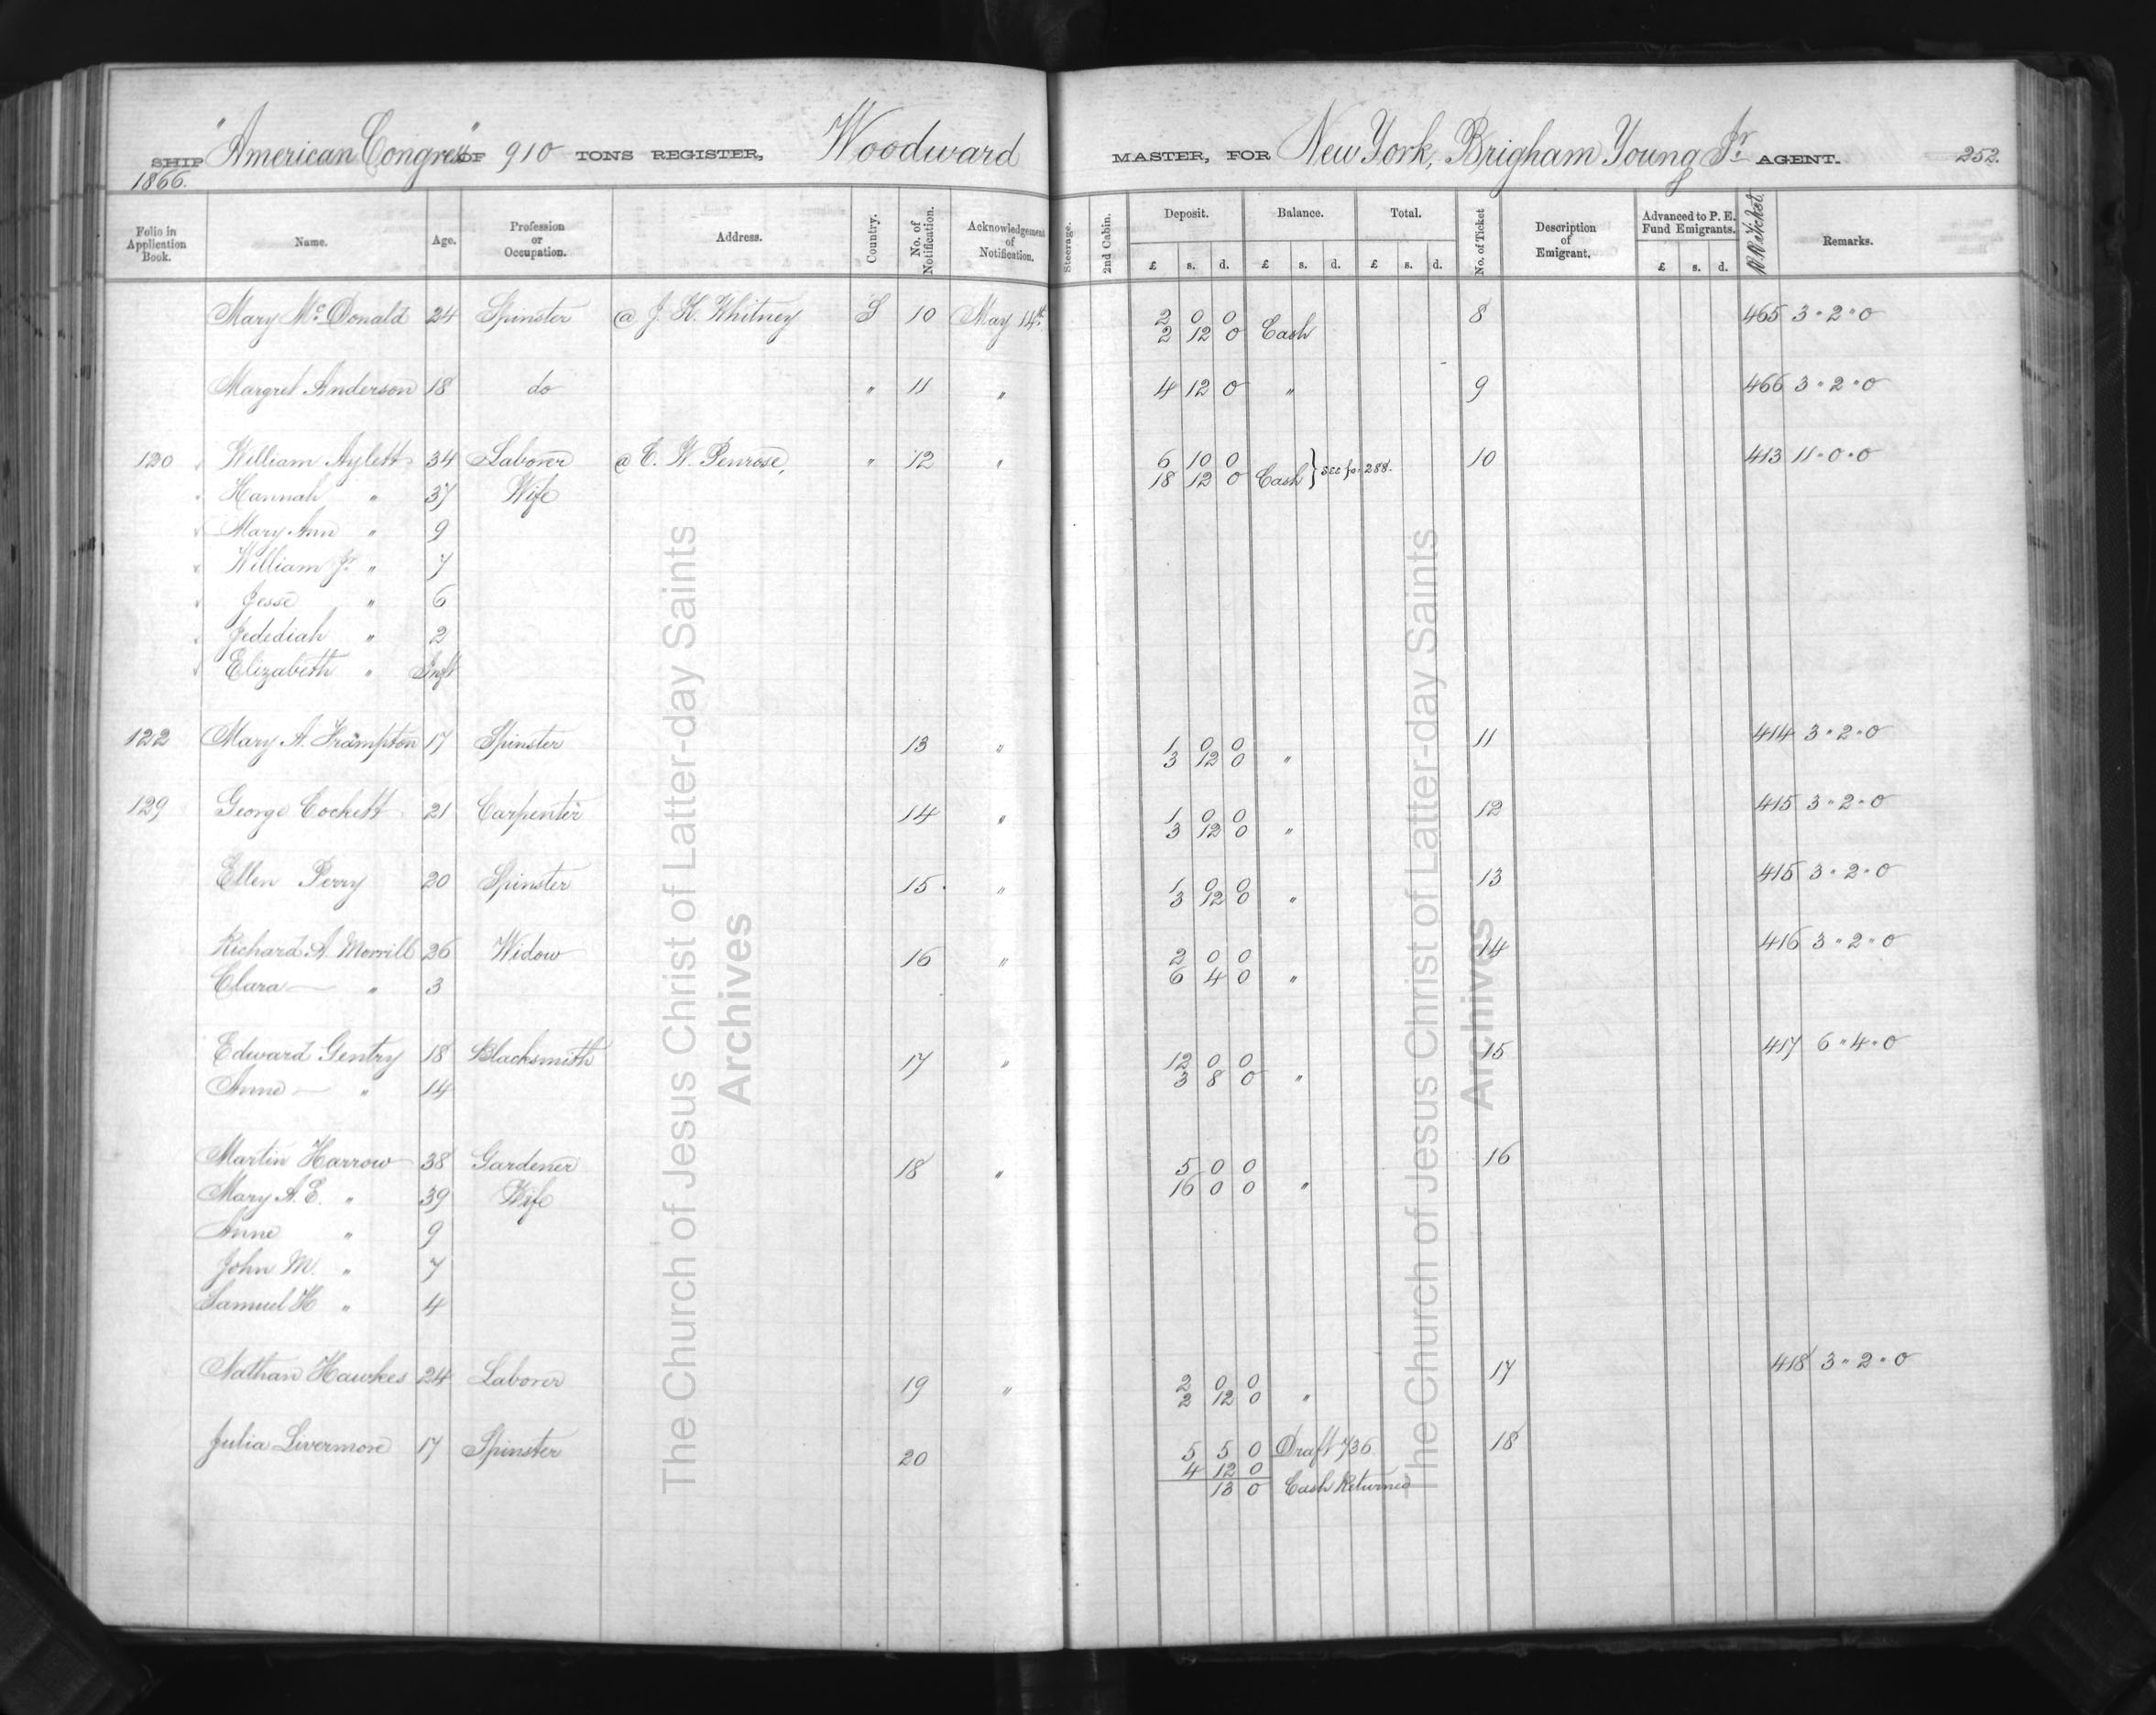 SHIP "American Congress" OF 910 TONS REGISTER, Woodward MASTER, FOR New York, Brigham Young Jr. AGENT. 252.
1866.
Folio in Application Book. Name. Age. Profession or Occupation. Address. Country. No. of Notification. Acknowledgement of Notification. Steerage. 2nd Cabin. Deposit. £ s. d. Balance. £ s. d. Total. £ s. d. No. of Ticket Description of Emigrant. Advanced to P. E. Fund Emigrants. £ s. d. R.R. ticket. Remarks.
Mary Mc Donald 24 Spinster @ J. K. Whitney S 10 May 14th 2 0 0 8 465 3 " 2 " 0
2 12 0 Cash
Margret Anderson 18 do " 11 " 4 12 0 " 9 466 3 " 2 " 0
120 William Aylett 34 Laborer @ E. W. Penrose, " 12 " 6 10 0 10 413 11 " 0 " 0
18 12 0 Cash } see fo: 288.
Hannah " 37 Wife
Mary Ann " 9
William Jr. " 7
Jesse " 6
Jedediah " 2
Elizabeth " Inft
122 Mary A. Frampton 17 Spinster 13 " 1 0 0 11 414 3 " 2 " 0
3 12 0 "
129 George Cockett 21 Carpenter 14 " 1 0 0 12 415 3 " 2 " 0
3 12 0 "
Ellen Perry 20 Spinster 15 " 1 0 0 13 415 3 " 2 " 0
3 12 0 "
Richard A. Morrill 26 Widow 16 " 2 0 0 14 416 3 " 2 " 0
Clara " 3 6 4 0 "
Edward Gentry 18 Blacksmith 17 " 12 0 0 15 417 6 " 4 " 0
3 8 0 "
Anne " 14
Martin Harrow 38 Gardener 18 " 5 0 0 16
16 0 0 "
Mary A. E. " 39 Wife
Anne " 9
John M. " 7
Samuel H " 4
Nathan Hawkes 24 Laborer 19 " 2 0 0 17 418 3 " 2 " 0
2 12 0 "
Julia Livermore 17 Spinster 20 5 5 0 Draft 736 18
4 12 0
13 0 Cash Returned
The Church of Jesus Christ of Latter-day Saints
Archives
The Church of Jesus Christ of Latter-day Saints
Archives